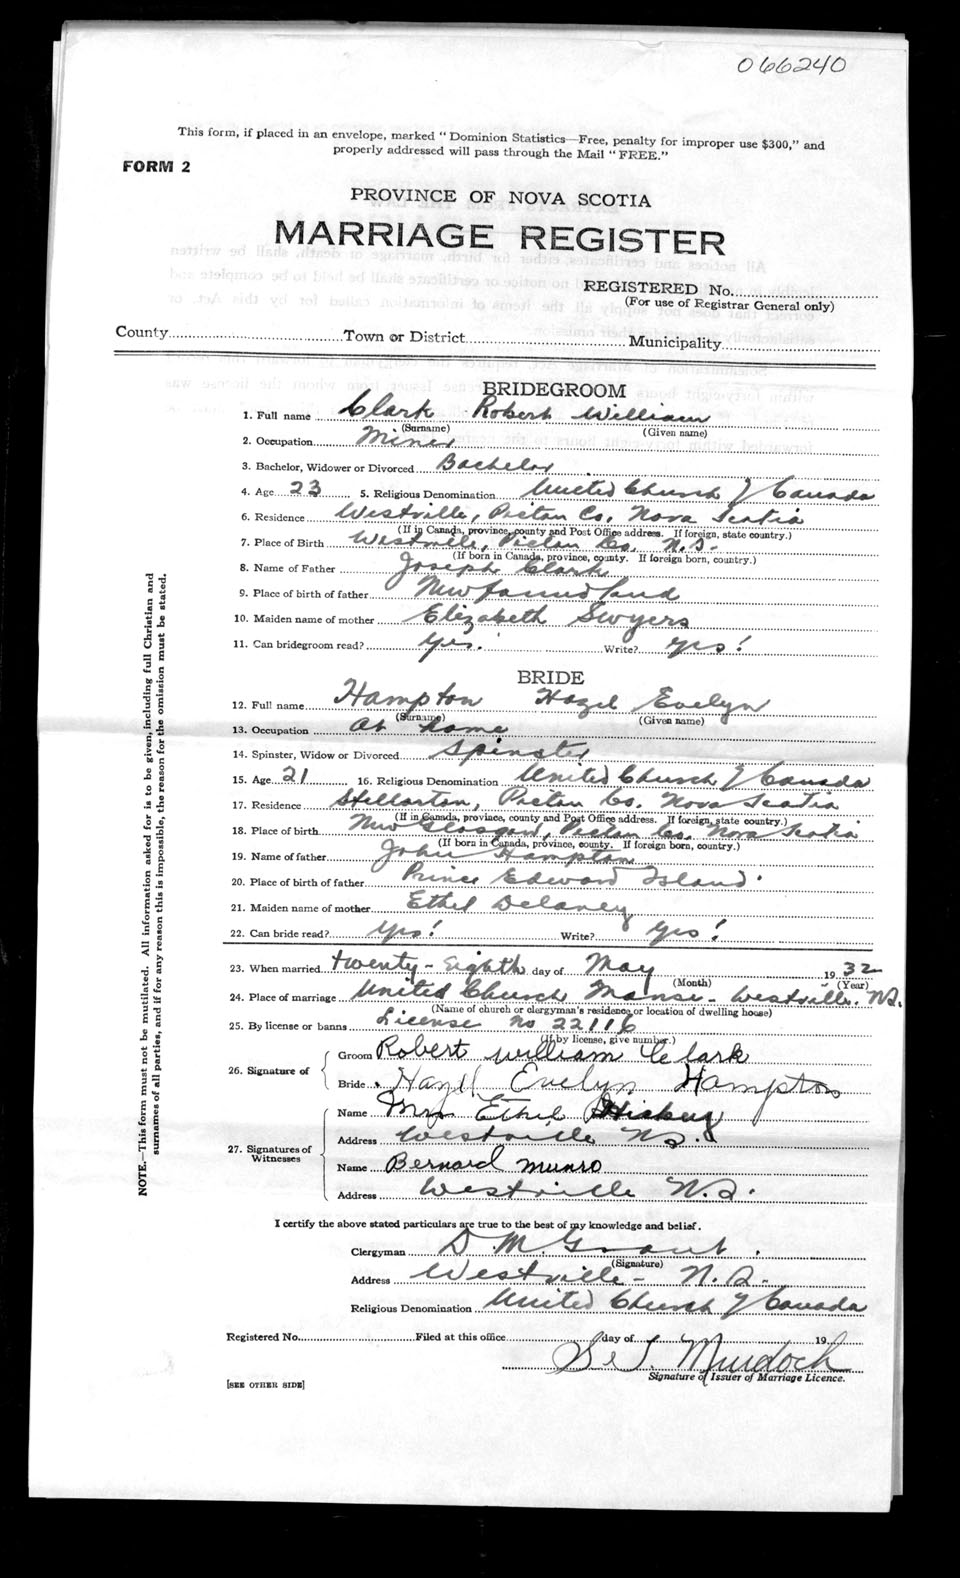 066240
This form, if placed in an envelope, marked "Dominion Statistics—Free, penalty for improper use $300," and
properly addressed will pass through the Mail "FREE."
FORM 2
PROVINCE OF NOVA SCOTIA
MARRIAGE REGISTER
REGISTERED No.
(For use of Registrar General only)
County Town or District Municipality
BRIDEGROOM
1. Full name Clark Robert William
(Surname) (Given name)
2. Occupation Miner
3. Bachelor, Widower or Divorced Bachelor
4. Age 23 5. Religious Denomination United Church of Canada
6. Residence Westville, Pictou Co. Nova Scotia
(If in Canada, province, county and Post Office address. If foreign, state country.)
7. Place of Birth Westville, Pictou Co. N.S.
(If born in Canada, province, county. If foreign born, country.)
8. Name of Father Joseph Clark
9. Place of birth of father Newfoundland
10. Maiden name of mother Elizabeth Swyers
11. Can bridegroom read? yes. Write? yes!
BRIDE
12. Full name Hampton Hazel Evelyn
(Surname) (Given name)
13. Occupation At home
14. Spinster, Widow or Divorced Spinster
15. Age 21 16. Religious Denomination United Church of Canada
17. Residence Stellarton, Pictou Co. Nova Scotia
(If in Canada, province, county and Post Office address. If foreign, state country.)
18. Place of birth New Glasgow, Pictou Co. Nova Scotia
(If born in Canada, province, county. If foreign born, country.)
19. Name of father John Hampton
20. Place of birth of father Prince Edward Island.
21. Maiden name of mother Ethel Delaney
22. Can bride read? yes! Write? yes!
23. When married twenty-eighth day of May 1932
(Month) (Year)
24. Place of marriage United Church Manse - Westville. N.S.
(Name of church or clergyman's residence, or location of dwelling house)
25. By license or banns License No 22116
(If by license, give number.)
26. Signature of Groom Robert William Clark
Bride Hazel Evelyn Hampton
27. Signatures of Witnesses Name Mrs Ethel Hickey
Address Westville N.S.
Name Bernard Munro
Address Westville N.S.
I certify the above stated particulars are true to the best of my knowledge and belief.
Clergyman D. M. Grant.
(Signature)
Address Westville - N.S.
Religious Denomination United Church of Canada
Registered No. Filed at this office day of 19
Murdoch
Signature of Issuer of Marriage Licence.
[SEE OTHER SIDE]
NOTE.—This form must not be mutilated. All information asked for is to be given, including full Christian and
surnames of all parties, and if for any reason this is impossible, the reason for the omission must be stated.